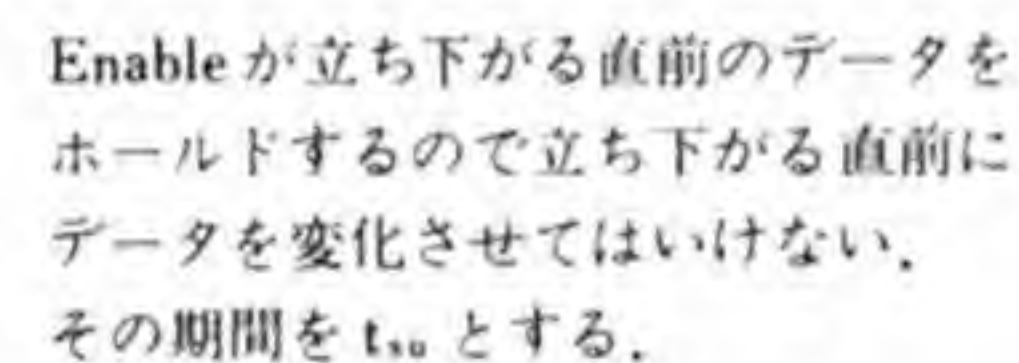 Enable が立ち下がる直前のデータを
ホールドするので立ち下がる直前に
データを変化させてはいけない.
その期間を tsu とする.